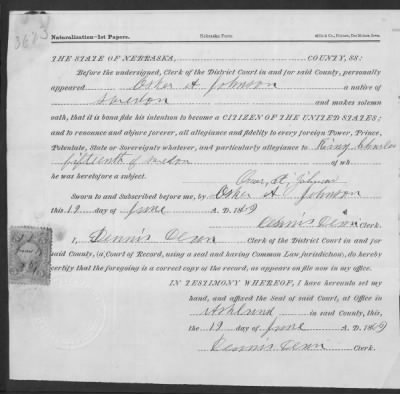 Naturalization—1st Papers. Nebraska Form.
THE STATE OF NEBRASKA, COUNTY, SS:
Before the undersigned, Clerk of the District Court in and for said County, personally
appeared Osker A. Johnson a native of
Sweedon and makes solemn
oath, that it is bona fide his intention to become a CITIZEN OF THE UNITED STATES;
and to renounce and abjure forever, all allegiance and fidelity to every foreign Power, Prince,
Potentate, State or Sovereignty whatever, and particularly allegiance to King Charles
fifteenth of Sweedon of wh
he was heretofore a subject.
Sworn to and Subscribed before me, by Osker A Johnson
this 19 day of June A. D. 1869
Dennis Dean Clerk.
I, Dennis Dean Clerk of the District Court in and for
said County, (a Court of Record, using a seal and having Common Law jurisdiction,) do hereby
certify that the foregoing is a correct copy of the record, as appears on file now in my office.
IN TESTIMONY WHEREOF, I have hereunto set my
hand, and affixed the Seal of said Court, at Office in
Ashland in said County, this,
the 19 day of June A. D. 1869
Dennis Dean Clerk.